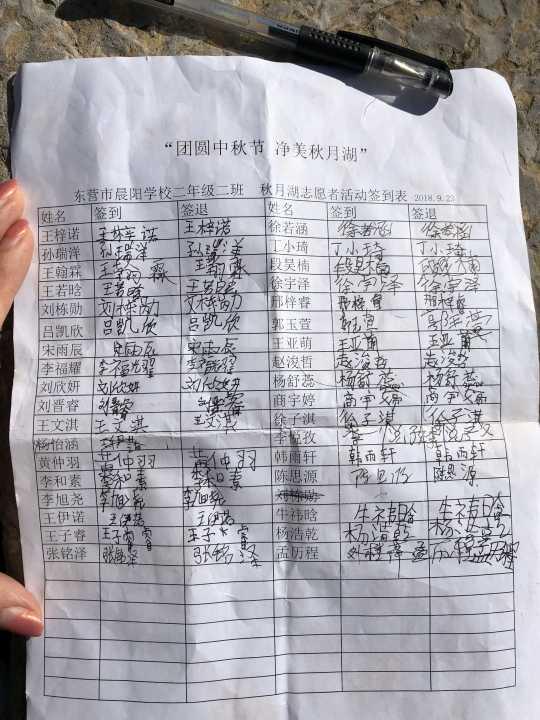 “团圆中秋节 净美秋月湖”
东营市晨阳学校二年级二班 秋月湖志愿者活动签到表 2018.9.23
姓名 签到 签退 姓名 签到 签退
王梓诺 王梓诺 王梓诺 徐若涵 徐若涵 徐若涵
孙瑞洋 孙瑞洋 丁小琦 丁小琦 丁小琦
王翰霖 段昊楠 段昊楠 段昊楠
王若晗 王若晗 徐宇泽 徐宇泽 徐宇泽
刘栋勋 刘栋勋 刘栋勋 邢梓睿 邢梓睿 邢梓
吕凯欣 吕凯欣 吕凯欣 郭玉萱
宋雨辰 宋雨辰 宋雨辰 王亚萌 王亚萌 王亚萌
李福耀 李福耀 李福耀 赵浚哲 赵浚哲 赵浚哲
刘欣妍 刘欣妍 刘欣妍 杨舒蕊 杨舒蕊 杨舒蕊
刘晋睿 刘晋睿 商宇婷 商宇婷 商宇婷
王文淇 王文淇 王文淇 徐子淇 徐子淇 徐子淇
杨怡涵 王伊诺 李悦孜
黄仲羽 黄仲羽 黄仲羽 韩雨轩 韩雨轩 韩雨轩
李和素 李和素 李和素 陈思源 陈思源
李旭尧 李旭尧 李旭尧 刘栋勋
王伊诺 王伊诺 王伊诺 牛祎晗 牛祎晗 牛祎晗
王子睿 王子睿 王子睿 杨浩乾 杨浩乾 杨浩乾
张铭泽 张铭泽 张铭泽 孟历程